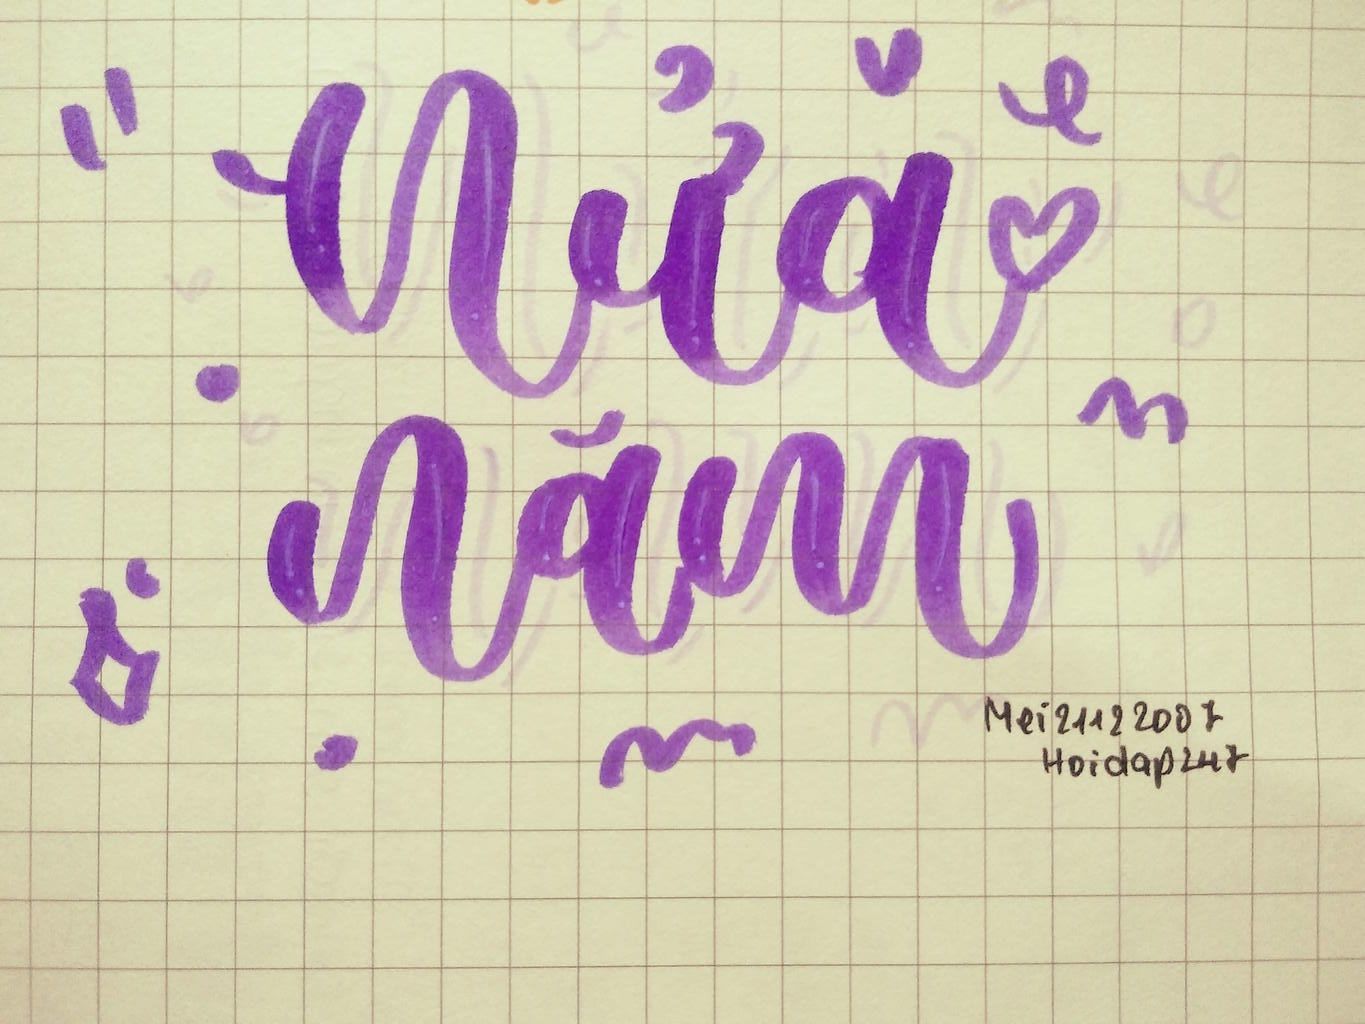 Nửa
năm
Mei21122007
Hoidap247